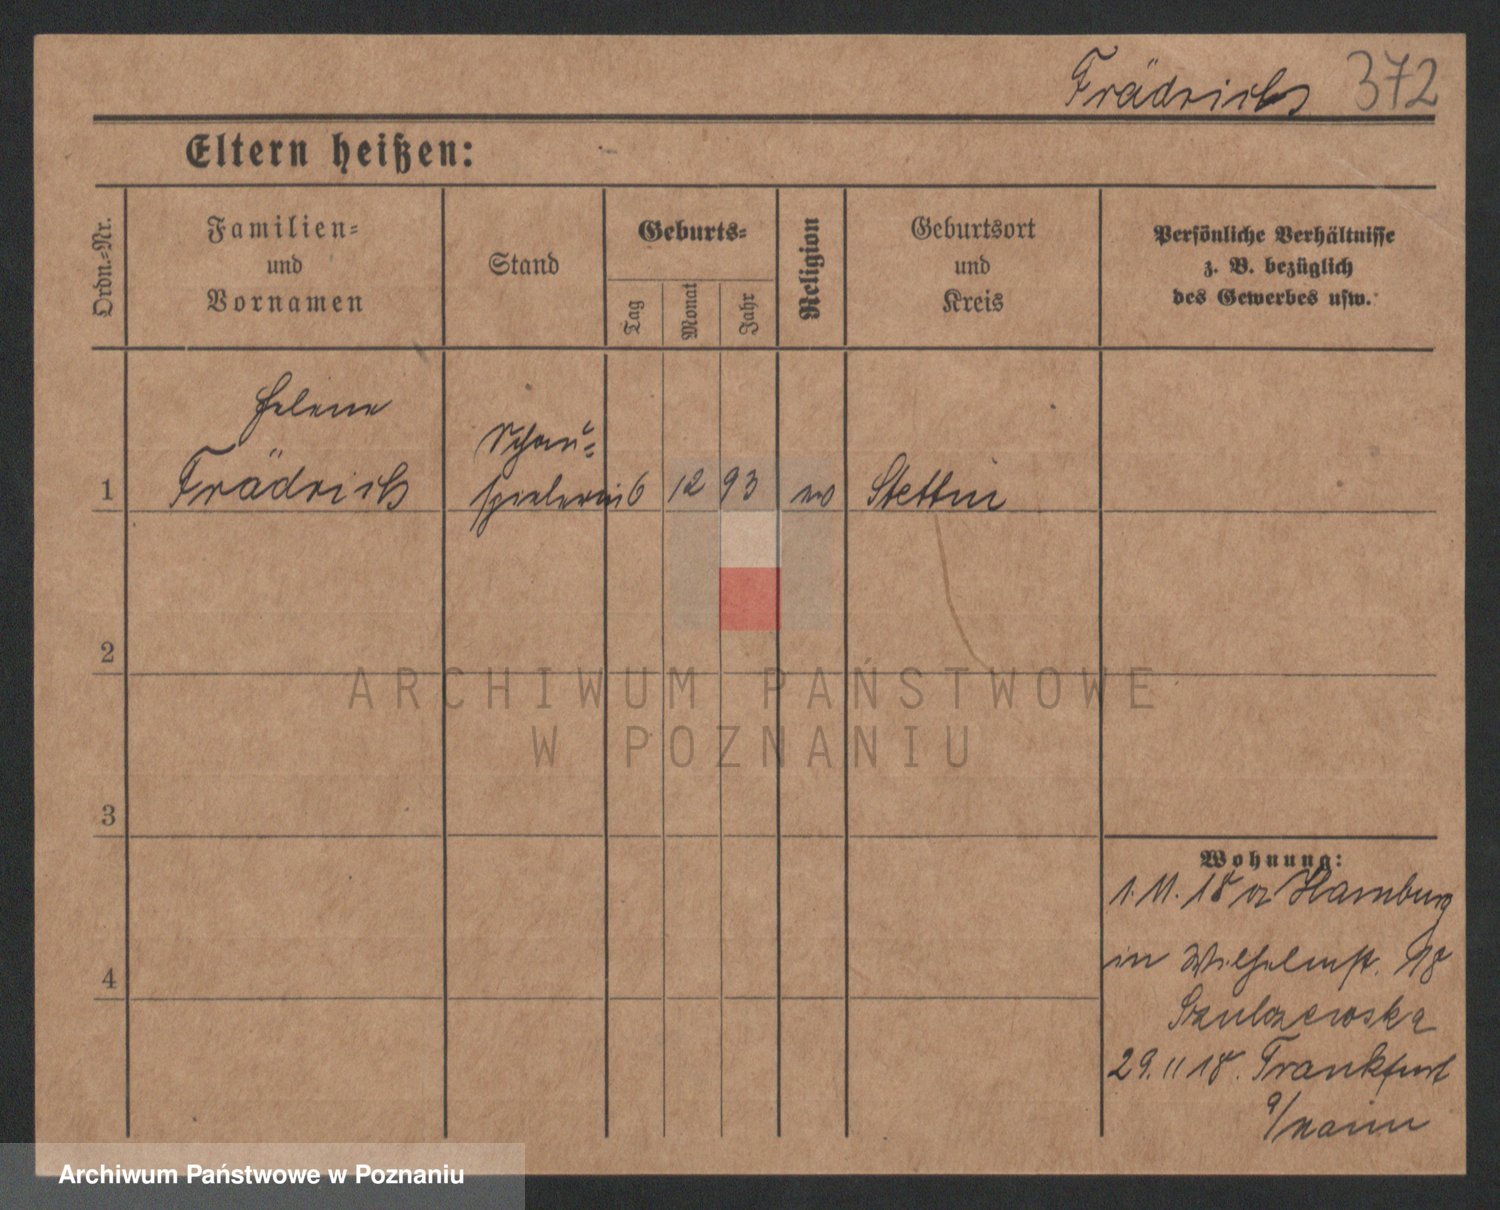 Frädrich 372
Eltern heißen:
Ordn.-Nr.
Familien-
und
Vornamen
Stand
Geburts-
Tag
Monat
Jahr
Religion
Geburtsort
und
Kreis
Persönliche Verhältnisse
z. B. bezüglich
des Gewerbes usw.
Helene
Schau-
1 Frädrich spielerin 6 12 93 ev Stettin
2
ARCHIWUM PAŃSTWOWE
W POZNANIU
3
Wohnung:
1. 11. 18 a Hamburg
4 in Wilhelmst. 18
29. 11 18. Frankfurt
a/Main
Archiwum Państwowe w Poznaniu